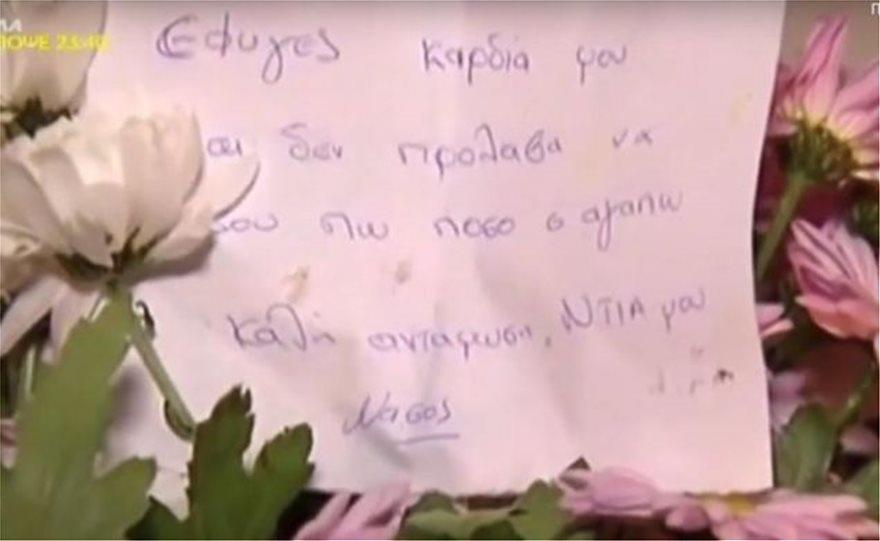 ΑΠΟΨΕ 23:40
Εφυγες καρδιά μου
αι δεν πρόλαβα να
σου πω ποσο σ αγαπω
Καλή ανταμωση, ΝΤΙΑ μου
Νασος